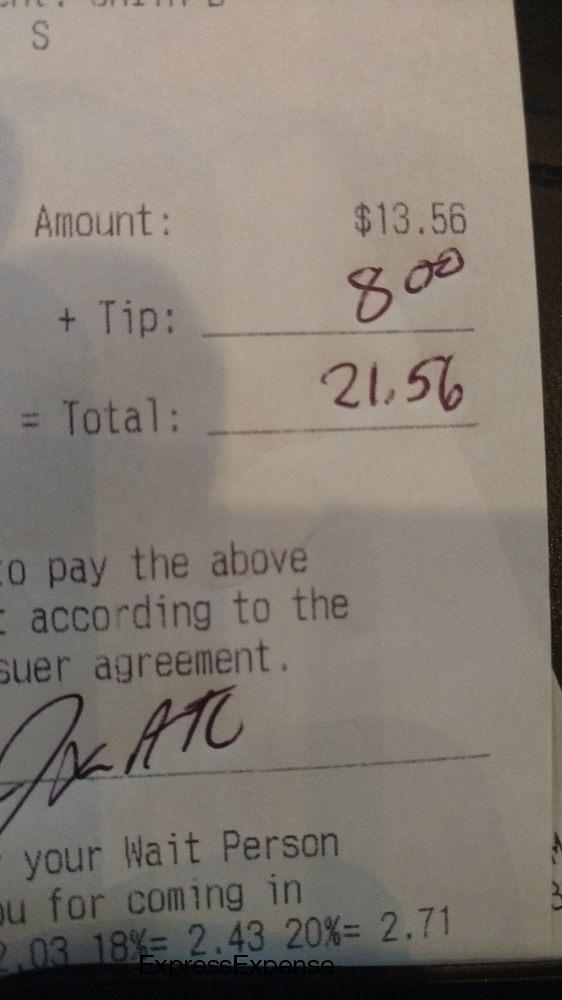 S
Amount: $13.56
+ Tip: 8 00
= Total: 21.56
to pay the above
according to the
suer agreement.
your Wait Person
ou for coming in
2.03 18%= 2.43 20%= 2.71
ExpressExpense